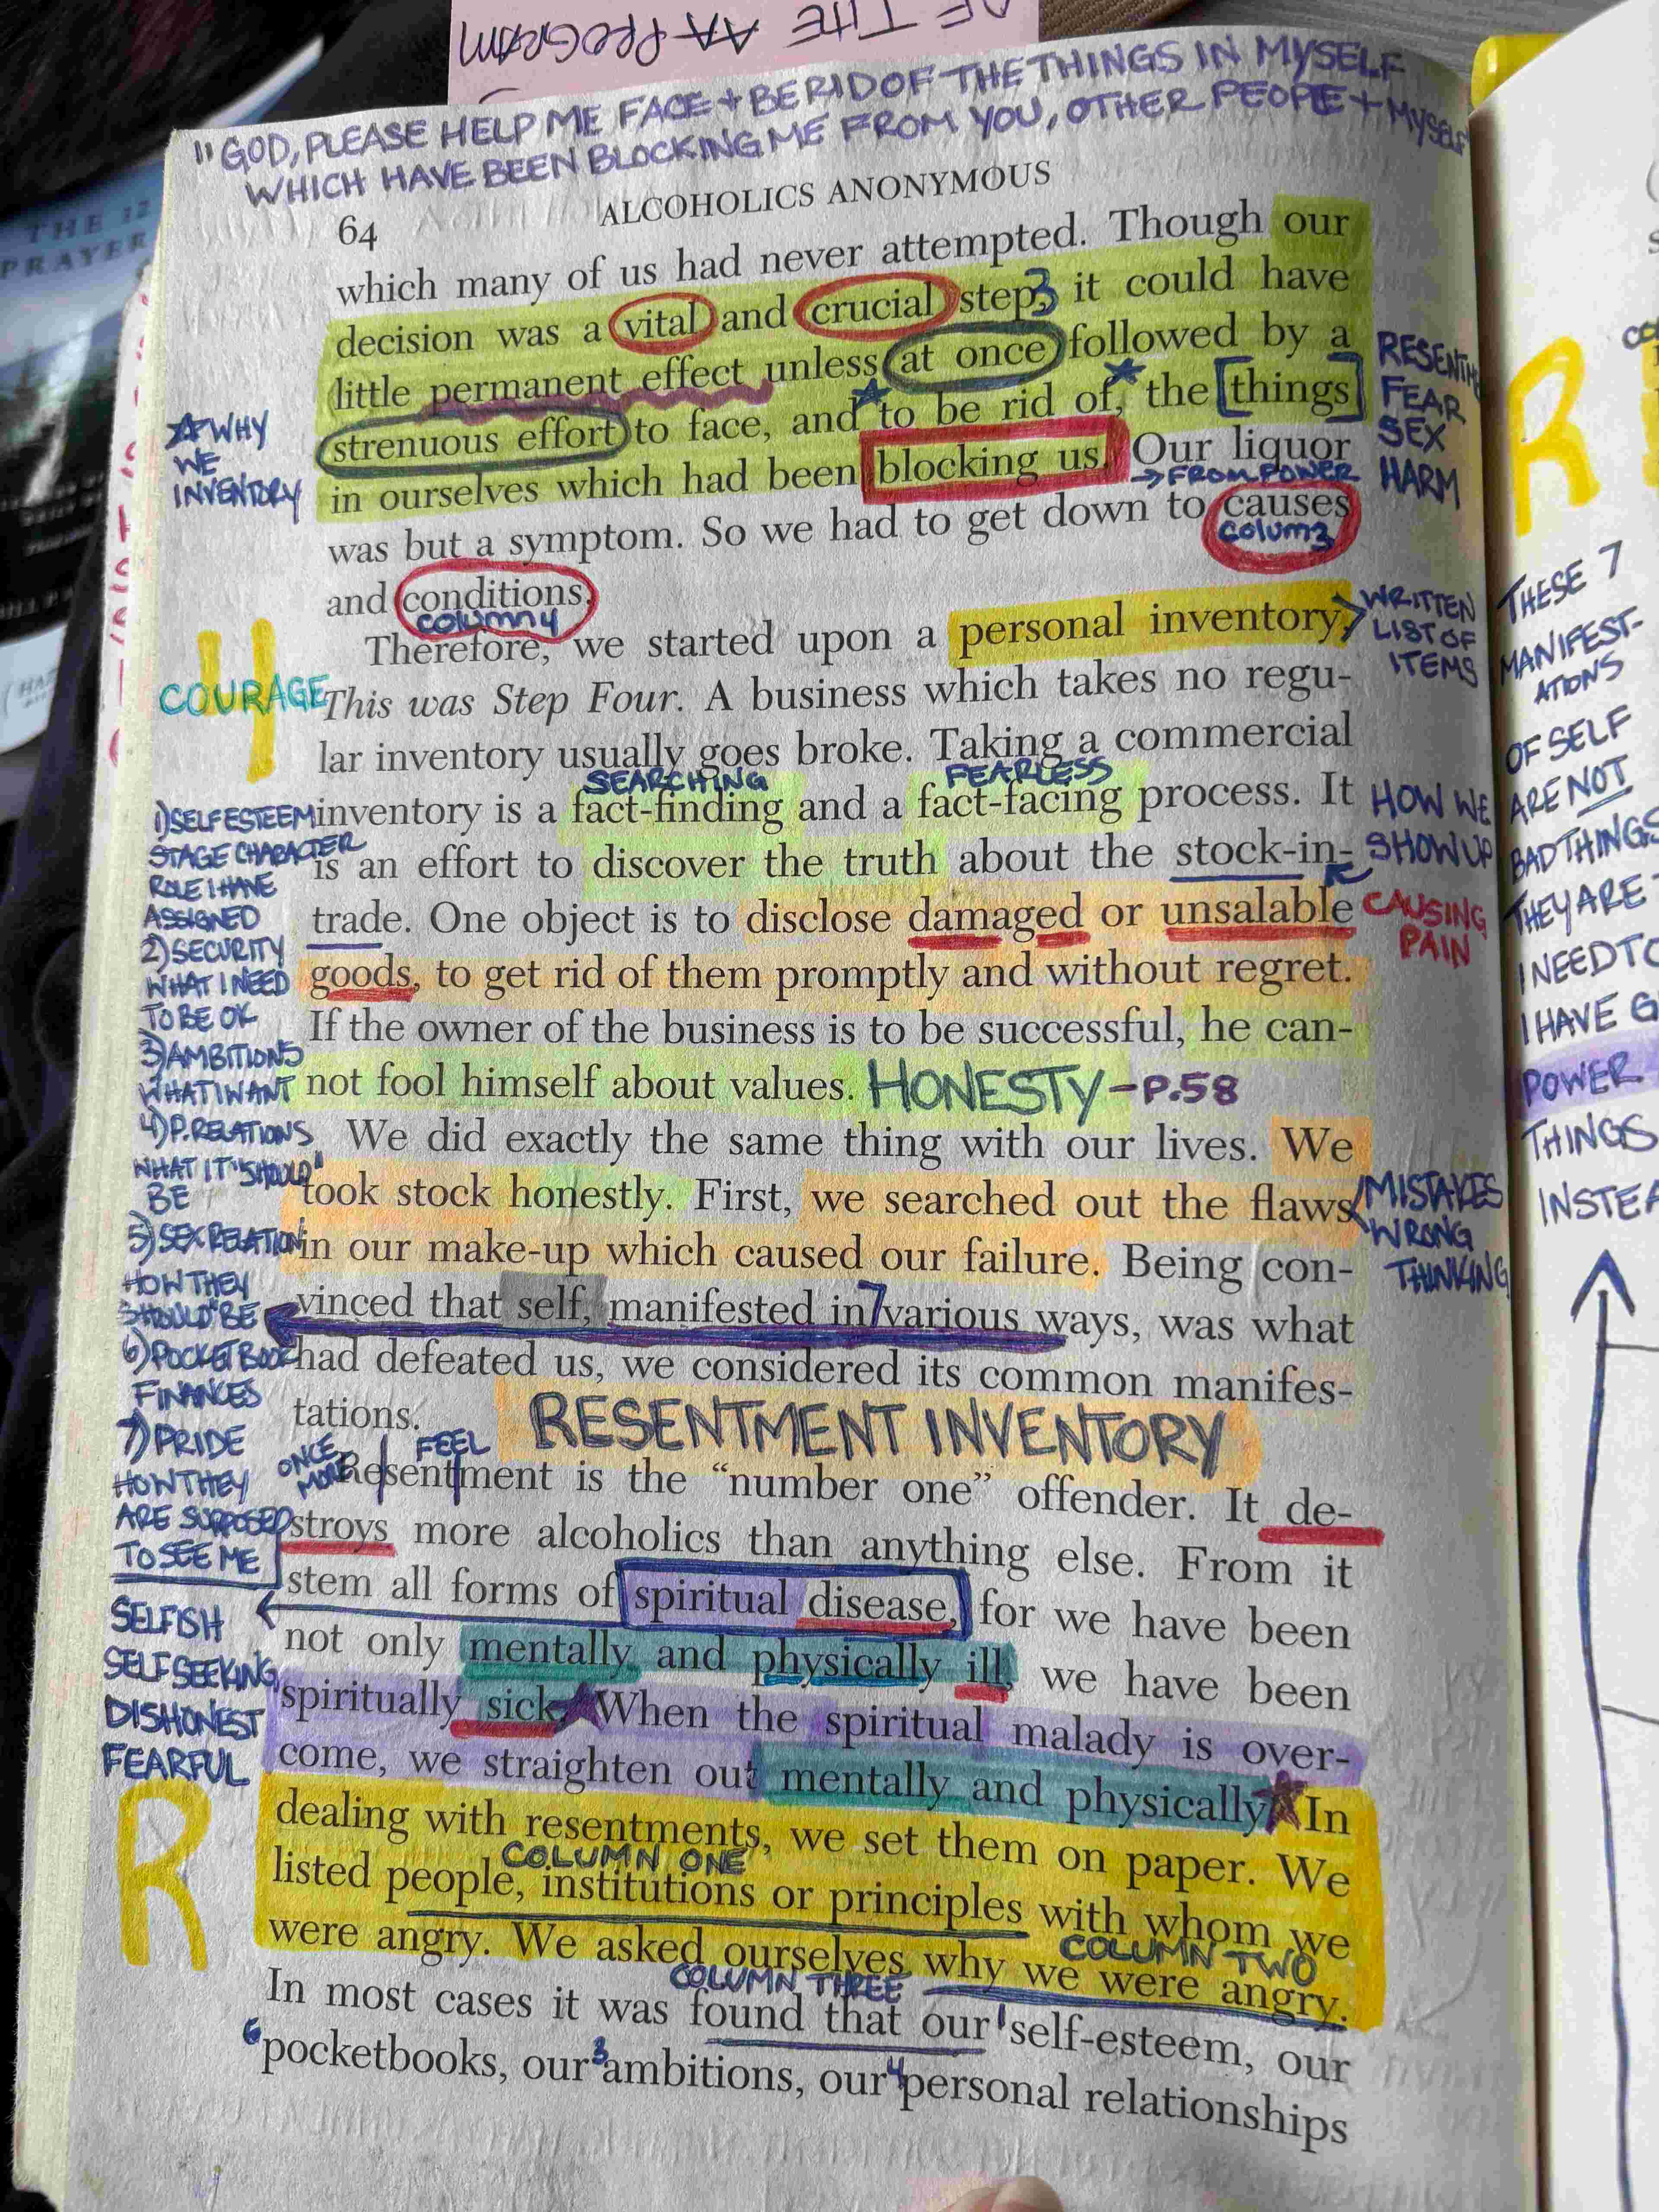 OF THE AA PROGRAM
"GOD, PLEASE HELP ME FACE + BE RID OF THE THINGS IN MYSELF
WHICH HAVE BEEN BLOCKING ME FROM YOU, OTHER PEOPLE + MYSELF
64 ALCOHOLICS ANONYMOUS
which many of us had never attempted. Though our
decision was a vital and crucial step, 3 it could have
little permanent effect unless at once followed by a
strenuous effort to face, and to be rid of, the [things]
in ourselves which had been blocking us. Our liquor
→ FROM POWER
was but a symptom. So we had to get down to causes
COLUM 3
and conditions.
COLUMN 4
Therefore, we started upon a personal inventory.
This was Step Four. A business which takes no regu-
lar inventory usually goes broke. Taking a commercial
SEARCHING FEARLESS
inventory is a fact-finding and a fact-facing process. It
is an effort to discover the truth about the stock-in-
trade. One object is to disclose damaged or unsalable
goods, to get rid of them promptly and without regret.
If the owner of the business is to be successful, he can-
not fool himself about values. HONESTY – P.58
We did exactly the same thing with our lives. We
took stock honestly. First, we searched out the flaws
in our make-up which caused our failure. Being con-
vinced that self, manifested in 7 various ways, was what
had defeated us, we considered its common manifes-
tations. RESENTMENT INVENTORY
ONCE MORE FEEL
Resentment is the "number one" offender. It de-
stroys more alcoholics than anything else. From it
stem all forms of spiritual disease, for we have been
not only mentally and physically ill, we have been
spiritually sick. When the spiritual malady is over-
come, we straighten out mentally and physically. In
dealing with resentments, we set them on paper. We
COLUMN ONE
listed people, institutions or principles with whom we
COLUMN TWO
were angry. We asked ourselves why we were angry.
COLUMN THREE
In most cases it was found that our 1 self-esteem, our
6 pocketbooks, our 3 ambitions, our 4 personal relationships
WHY
WE
INVENTORY
4
COURAGE
1) SELF ESTEEM
STAGE CHARACTER
ROLE I HAVE
ASSIGNED
2) SECURITY
WHAT I NEED
TO BE OK
3) AMBITIONS
WHAT I WANT
4) P. RELATIONS
WHAT IT "SHOULD"
BE
5) SEX RELATION
HOW THEY
SHOULD BE
6) POCKET BOOK
FINANCES
7) PRIDE
HOW THEY
ARE SUPPOSED
TO SEE ME
SELFISH
SELF SEEKING
DISHONEST
FEARFUL
R
FEAR
SEX
HARM
WRITTEN
LIST OF
ITEMS
HOW WE
SHOW UP
CAUSING
PAIN
MISTAKES
WRONG
THINKING
R
THESE 7
MANIFEST-
ATIONS
OF SELF
ARE NOT
BAD THINGS
THEY ARE
I NEED TO
I HAVE
POWER
THINGS
THE 12
PRAYER